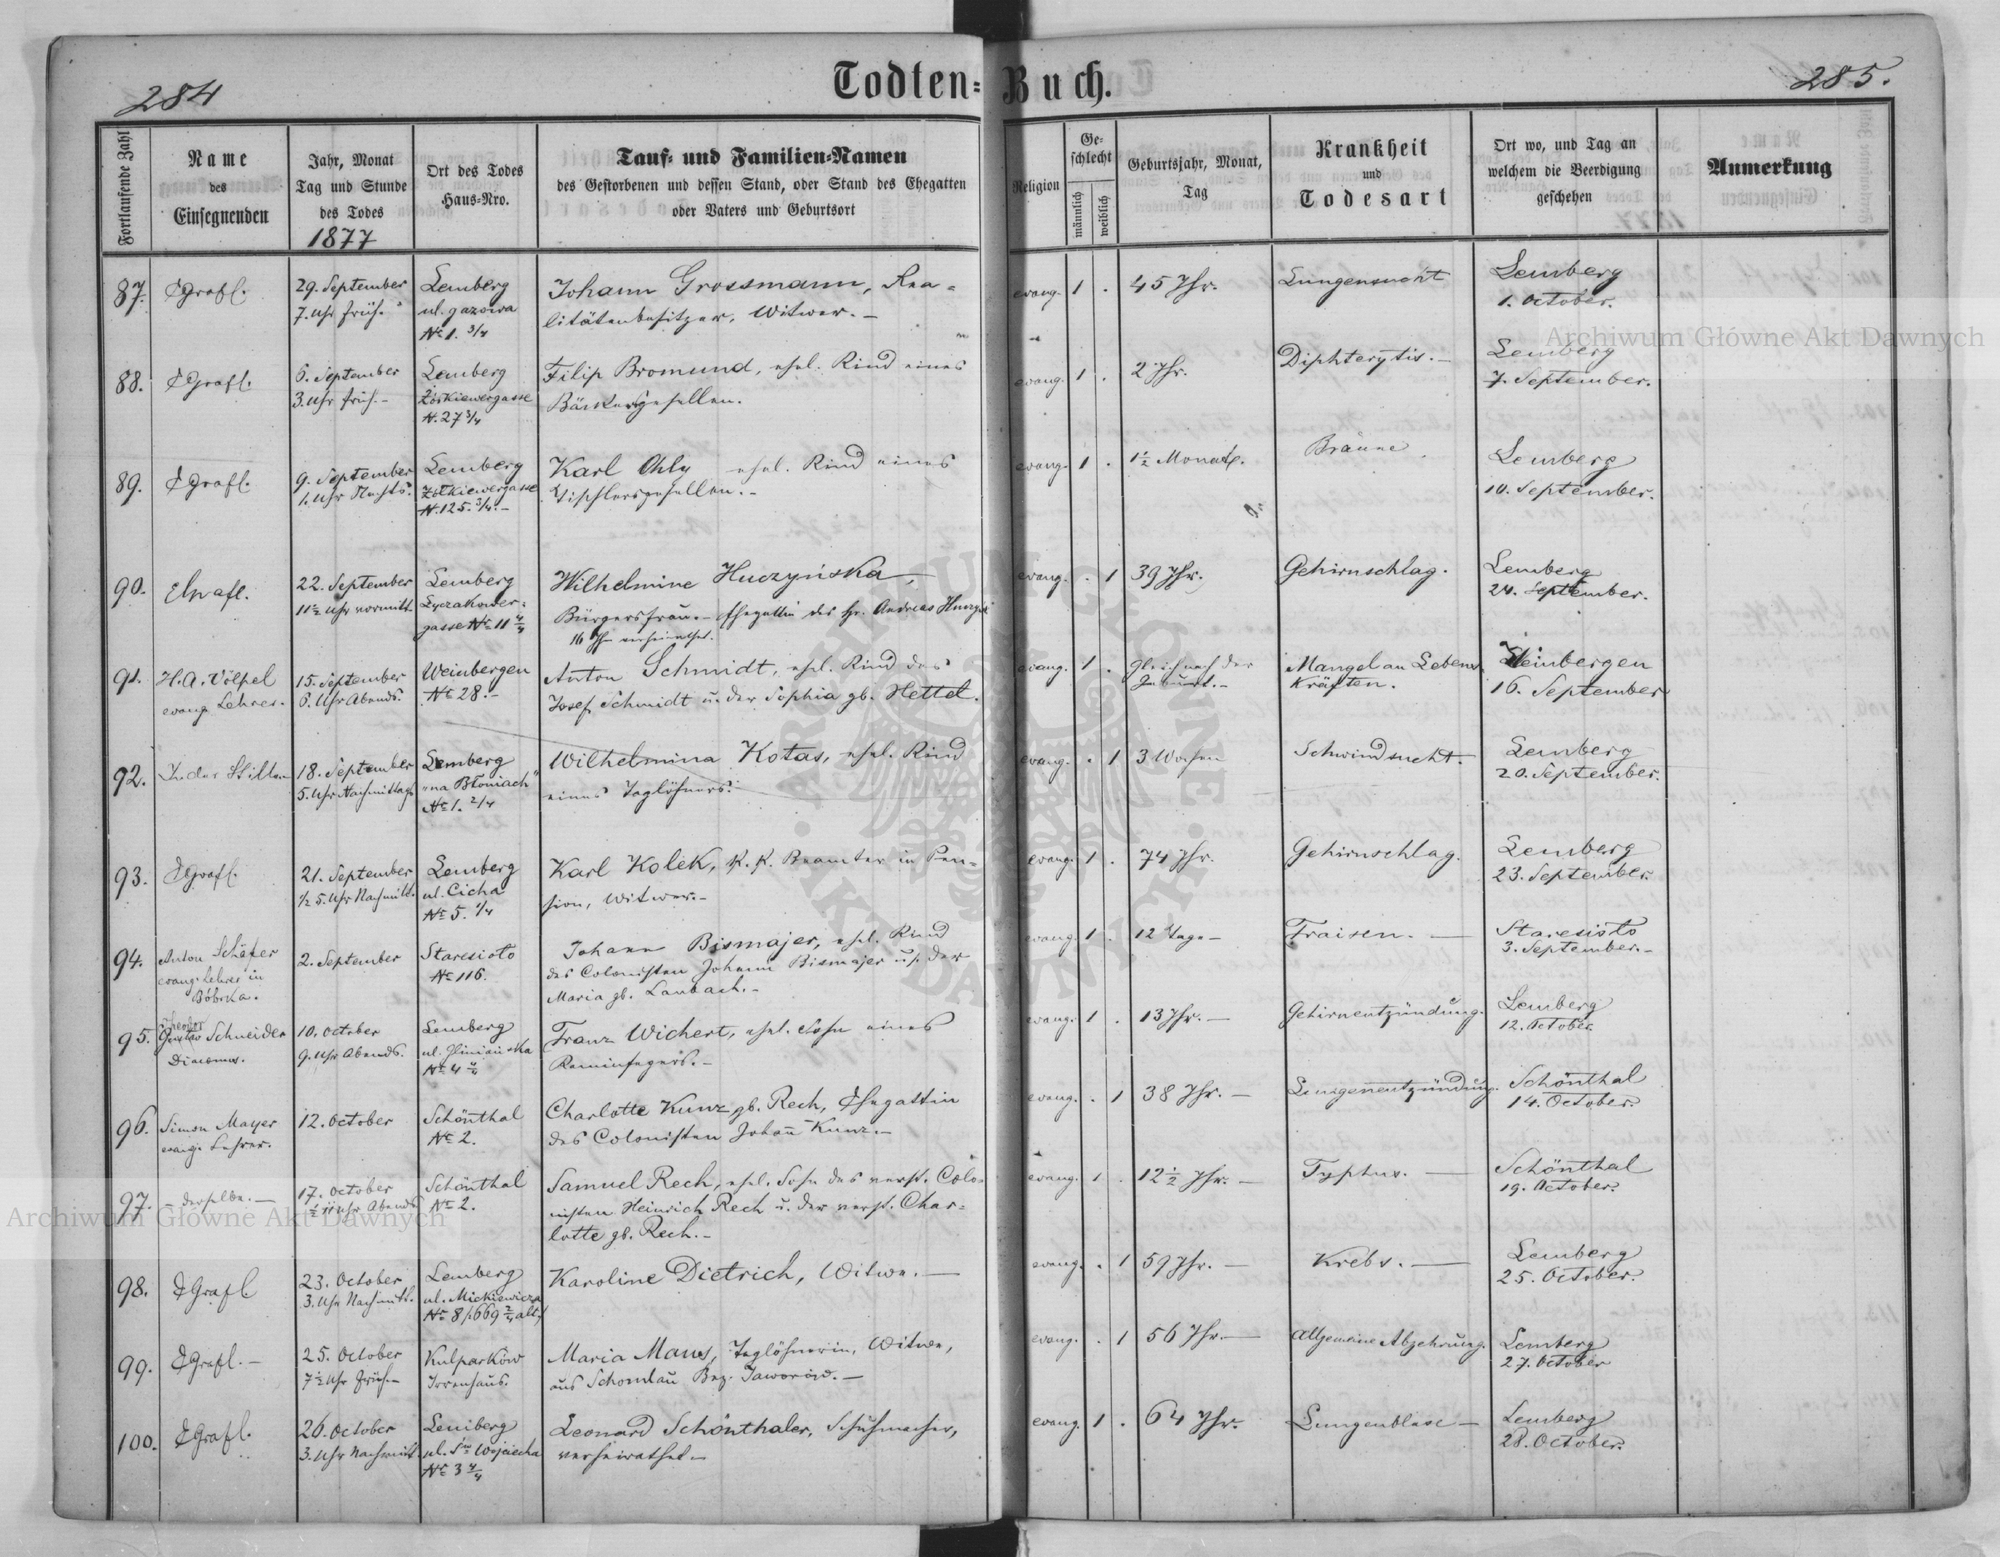 284
Todten-Buch.
285.
Fortlaufende Zahl
Name
des
Einsegnenden
Jahr, Monat
Tag und Stunde
des Todes
1877
Ort des Todes
Haus-Nro.
Tauf- und Familien-Namen
des Gestorbenen und dessen Stand, oder Stand des Ehegatten
oder Vaters und Geburtsort
Religion
Geschlecht
männlich
weiblich
Geburtsjahr, Monat,
Tag
Krankheit
und
Todesart
Ort wo, und Tag an
welchem die Beerdigung
geschehen
Anmerkung
87. Grafl. 29. September Lemberg Johann Grossmann, Rea- evang. 1 . 45 Jhr. Lungensucht Lemberg
7. Uhr früh. ul. gazowa litätenbesitzer, Witwer. 1. October.
Nr 1. 3/4
88. Grafl. 6. September Lemberg Filip Bromund, ehel. Kind eines evang. 1 . 2 Jhr. Diphterytis. Lemberg
3. Uhr früh. Żółkiewergasse Bäckergesellen. 7. September.
N. 27 3/4
89. Grafl. 9. September Lemberg Karl Ohly ehel. Kind eines evang. 1 . 1½ Monate. Bräune. Lemberg
1. Uhr Nachts. Żółkiewergasse Tischlergesellen. 10. September.
N. 125. 3/4.
90. 22. September Lemberg Wilhelmine Huczyńska, evang. . 1 39 Jhr. Gehirnschlag. Lemberg
11½ Uhr vormitt. Lyczakower- Bürgersfrau. Ehegattin des Hr. Andreas 24. September.
gasse Nr 11 4/4 16 Jhr verheirathet.
91. H. A. Völpel 15. September Weinbergen Anton Schmidt, ehel. Kind des evang. 1 . Gleich nach der Mangel an Lebens Weinbergen
evang. Lehrer. 6. Uhr Abends. Nr 28. Josef Schmidt u. der Sophia gb. Hettel. Geburt. Kräften. 16. September
92. In der Stille 18. September Lemberg Wilhelmina Kotas, ehel. Kind evang. . 1 3 Wochen Schwindsucht. Lemberg
5. Uhr Nachmittags "na Błoniach" eines Taglöhners. 20. September.
Nr 1. 2/4
93. Grafl. 21. September Lemberg Karl Kolek, k. k. Beamter in Pen- evang. 1 . 74 Jhr. Gehirnschlag. Lemberg
½ 5. Uhr Nachmitt. ul. Cicha sion, Witwer. 23. September.
Nr 5. 1/4
94. Anton Schäfer 2. September Staresioło Johann Bismajer, ehel. Kind evang. 1 . 12 Tage Fraisen. Staresioło
evang. Lehrer in Nr 116. des Colonisten Johann Bismajer u. der 3. September.
Bóbrka. Maria gb. Laubach.
95. Theodor Gustav Schneider 10. October Lemberg Franz Wichert, ehel. Sohn eines evang. 1 . 13 Jhr. Gehirnentzündung. Lemberg
Diaconus. 9. Uhr Abends. ul. Gliniańska Kaminfegers. 12. October.
Nr 4 4/4
96. Simon Mayer 12. October Schönthal Charlotte Kunz gb. Rech, Ehegattin evang. . 1 38 Jhr. Lungenentzündung. Schönthal
evang. Lehrer. Nr 2. des Colonisten Johann Kunz. 14. October.
97. derselbe. 17. October Schönthal Samuel Rech, ehel. Sohn des verst. Colo- evang. 1 . 12½ Jhr. Typhus. Schönthal
½ 11 Uhr Abends Nr 2. nisten Heinrich Rech u. der verst. Char- 19. October.
lotte gb. Rech.
98. Grafl 23. October Lemberg Karoline Dietrich, Witwe. evang. . 1 59 Jhr. Krebs. Lemberg
3. Uhr Nachmitt. ul. Mickiewicza 25. October.
Nr 8/669 2/4 alt
99. Grafl. 25. October Kulparków Maria Maus, Taglöhnerin, Witwe, evang. . 1 56 Jhr. Allgemeine Abzehrung. Lemberg
7½ Uhr Früh. Irrenhaus. aus Schomlau Bez. Jaworów. 27. October
100. Grafl. 26. October Lemberg Leonard Schönthaler, Schuhmacher, evang. 1 . 64 Jhr. Lungenblase Lemberg
3. Uhr Nachmitt. ul. Sw Wojciecha verheirathet. 28. October.
Nr 3 4/4
Archiwum Główne Akt Dawnych
Archiwum Główne Akt Dawnych
ARCHIWUM GŁÓWNE AKT DAWNYCH